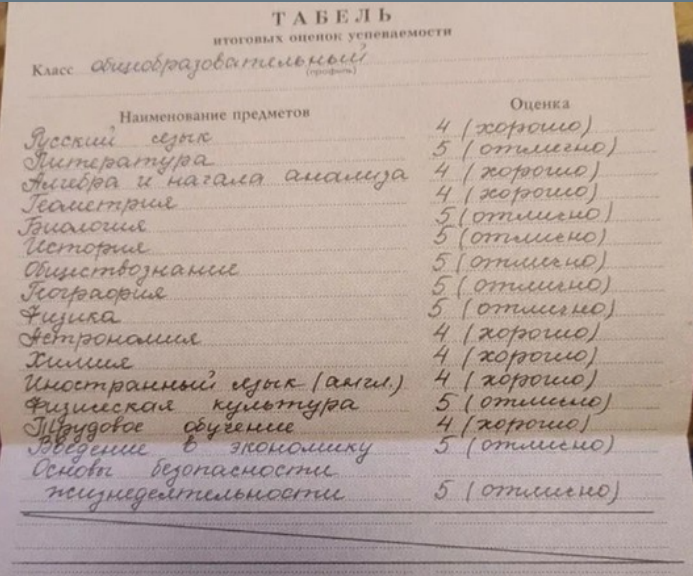 ТАБЕЛЬ
итоговых оценок успеваемости
Класс общеобразовательный
(профиль)
Наименование предметов Оценка
Русский язык 4 (хорошо)
Литература 5 (отлично)
Алгебра и начала анализа 4 (хорошо)
Геометрия 4 (хорошо)
Биология 5 (отлично)
История 5 (отлично)
Обществознание 5 (отлично)
География 5 (отлично)
Физика 5 (отлично)
Астрономия 4 (хорошо)
Химия 4 (хорошо)
Иностранный язык (англ.) 4 (хорошо)
Физическая культура 5 (отлично)
Трудовое обучение 4 (хорошо)
Введение в экономику 5 (отлично)
Основы безопасности
жизнедеятельности 5 (отлично)